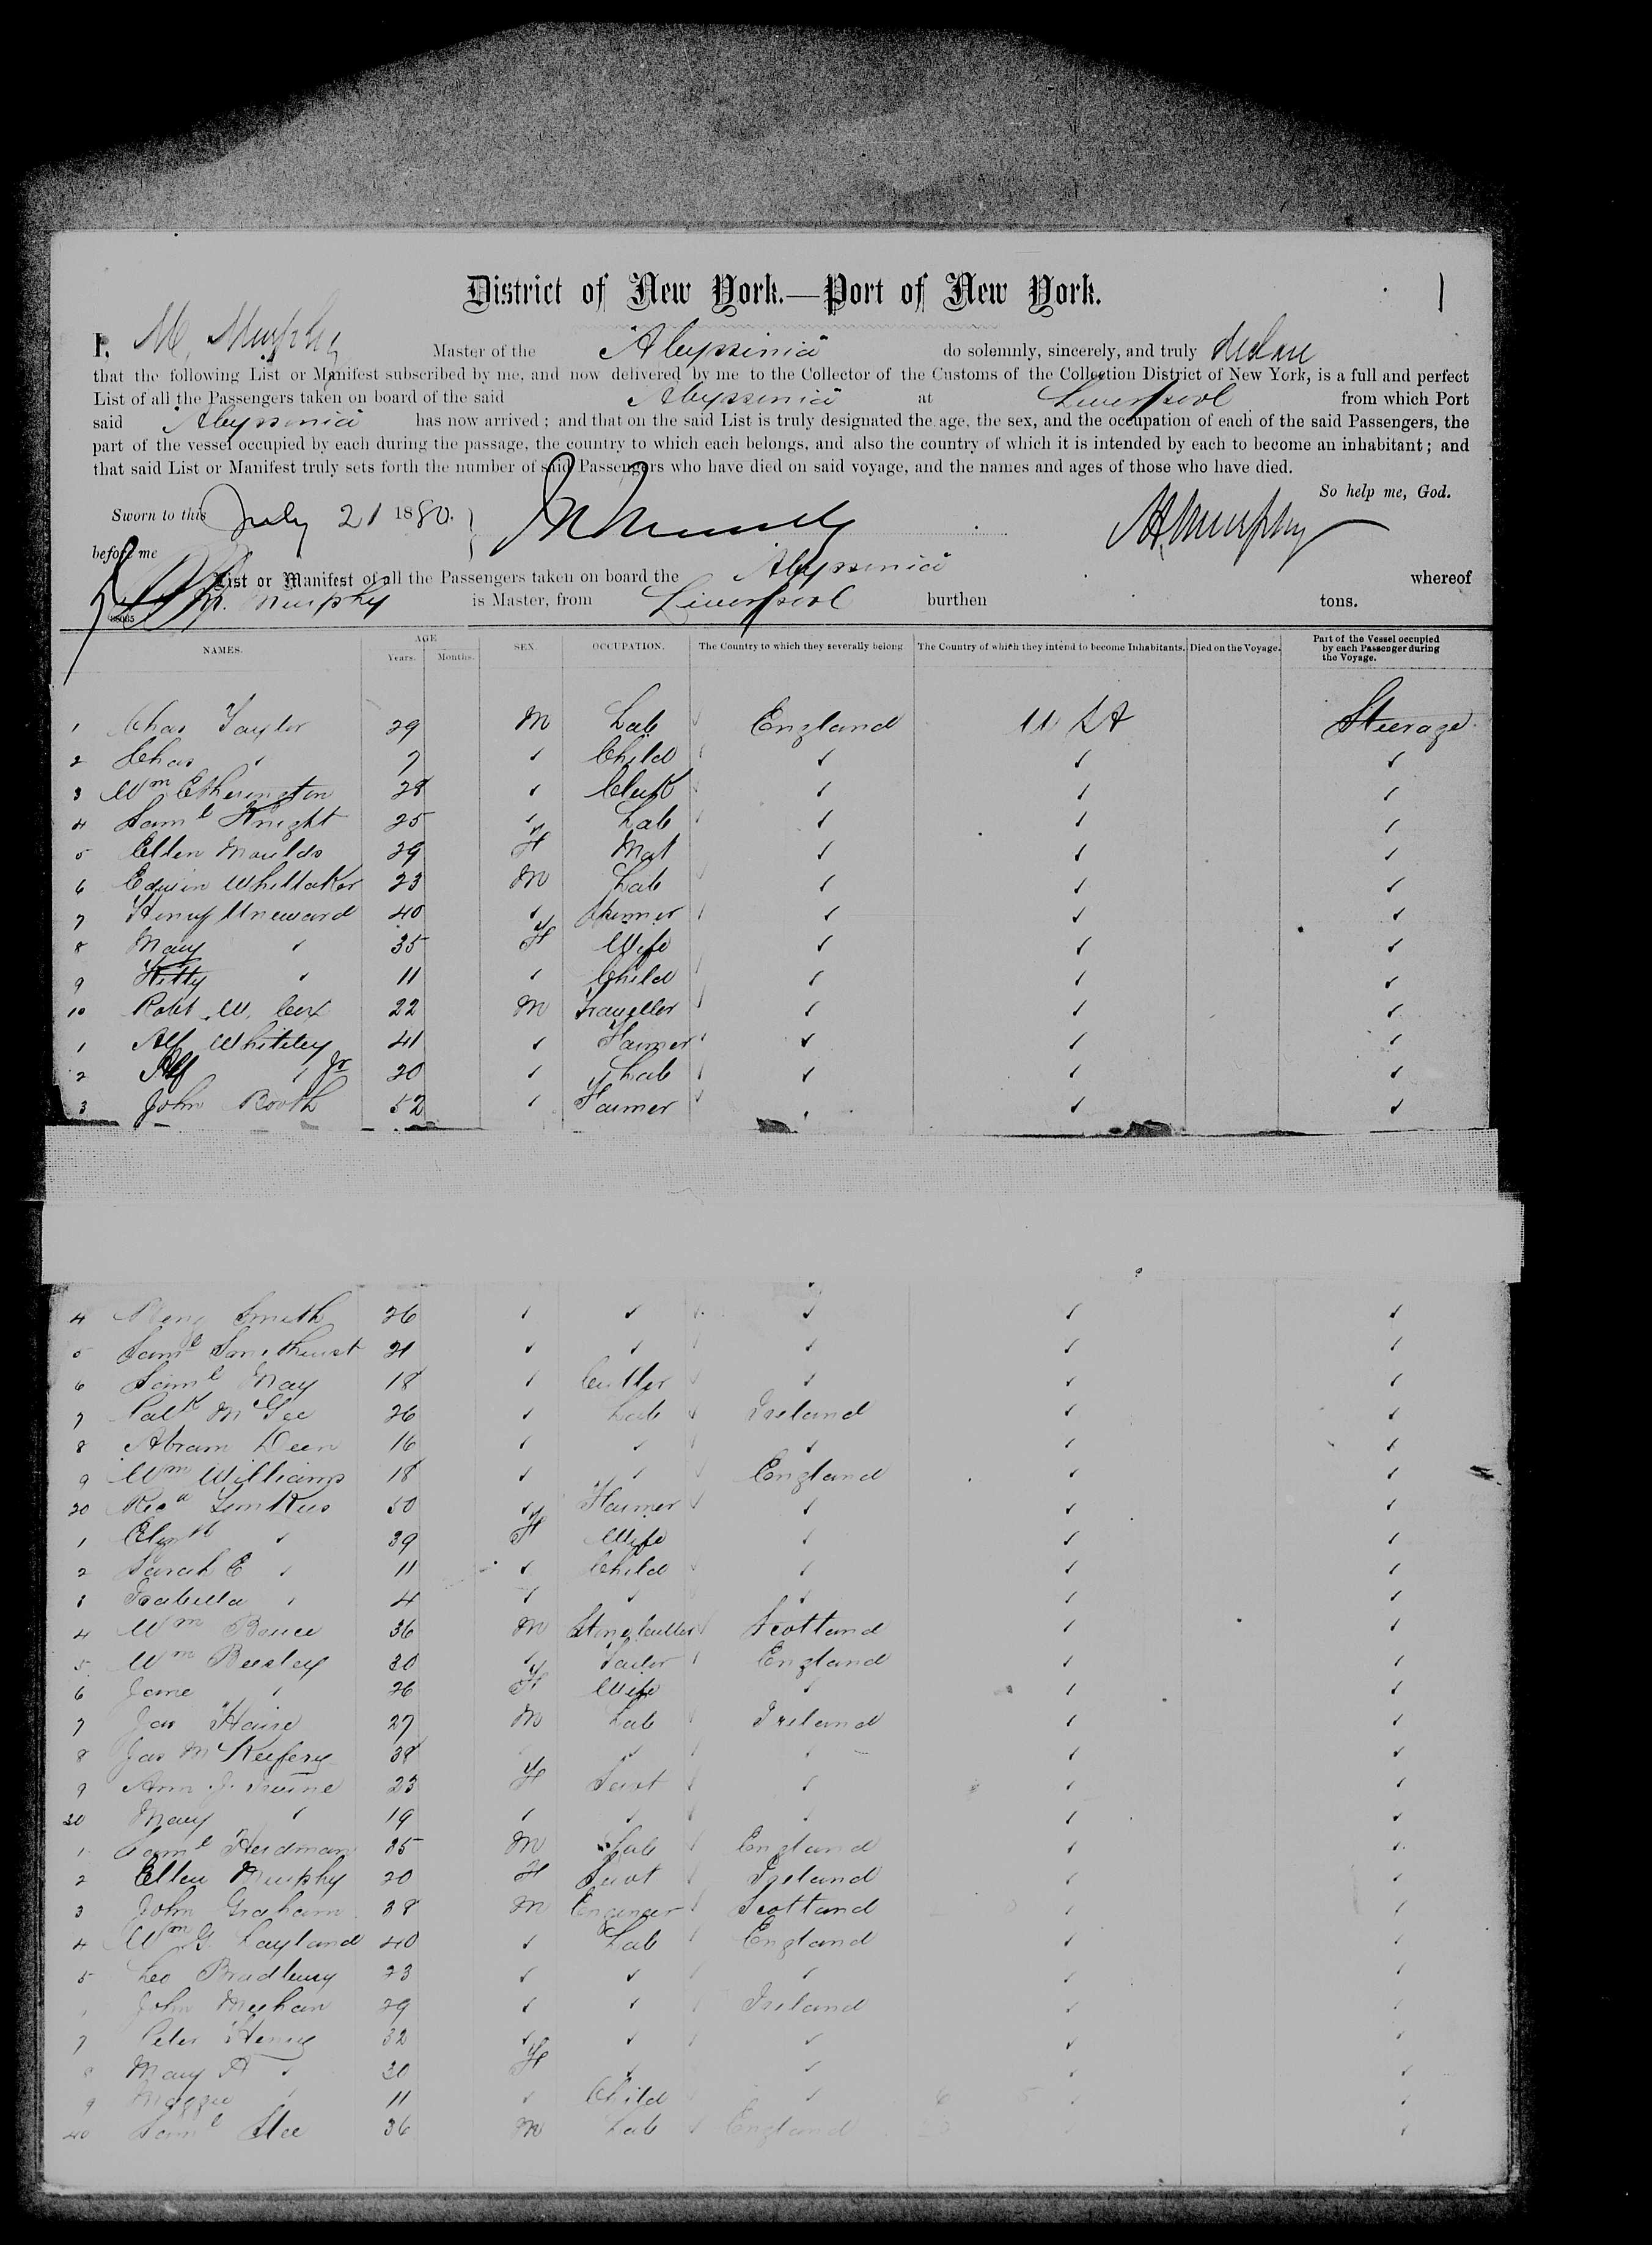 District of New York.—Port of New York.
1
I, M. Murphy Master of the "Abyssinia" do solemnly, sincerely, and truly declare
that the following List or Manifest subscribed by me, and now delivered by me to the Collector of the Customs of the Collection District of New York, is a full and perfect
List of all the Passengers taken on board of the said Abyssinia at Liverpool from which Port
said Abyssinia has now arrived; and that on the said List is truly designated the age, the sex, and the occupation of each of the said Passengers, the
part of the vessel occupied by each during the passage, the country to which each belongs, and also the country of which it is intended by each to become an inhabitant; and
that said List or Manifest truly sets forth the number of said Passengers who have died on said voyage, and the names and ages of those who have died.
So help me, God.
Sworn to this July 21 1880. M Murphy
before me
List or Manifest of all the Passengers taken on board the Abyssinia whereof
M. Murphy is Master, from Liverpool burthen tons.
NAMES. AGE Years. Months. SEX. OCCUPATION. The Country to which they severally belong. The Country of which they intend to become Inhabitants. Died on the Voyage. Part of the Vessel occupied by each Passenger during the Voyage.
1 Chas Taylor 29 M Lab England U St Steerage
2 Chas " 7 ✓ Child ✓ ✓ ✓
3 Wm Etherington 28 ✓ Clerk ✓ ✓ ✓
4 Saml Knight 25 ✓ Lab ✓ ✓ ✓
5 Ellen Moulds 29 F Mat ✓ ✓ ✓
6 Edwin Whittaker 23 M Lab ✓ ✓ ✓
7 Henry 40 ✓ ✓ ✓ ✓
8 Mary ✓ 35 F Wife ✓ ✓ ✓
9 Kitty ✓ 11 ✓ Child ✓ ✓ ✓
10 Robt W. Cox 22 M Traveller ✓ ✓ ✓
1 Alf Whiteley 41 ✓ Farmer ✓ ✓ ✓
2 Alf ✓ Jr 20 ✓ Lab ✓ ✓ ✓
3 John Booth 52 ✓ Farmer ✓ ✓ ✓
4 Benj Smith 26 ✓ ✓ ✓ ✓ ✓
5 Saml Smethurst 21 ✓ ✓ ✓ ✓ ✓
6 Saml May 18 ✓ Cutler ✓ ✓ ✓
7 Patk McGee 26 ✓ Lab Ireland ✓ ✓
8 Abram Deen 16 ✓ ✓ ✓ ✓ ✓
9 Wm Williams 18 ✓ ✓ England ✓ ✓
20 50 ✓ Farmer ✓ ✓ ✓
1 Elizth ✓ 39 F Wife ✓ ✓ ✓
2 Sarah E ✓ 11 ✓ Child ✓ ✓ ✓
3 Isabella ✓ 4 ✓ ✓ ✓ ✓ ✓
4 Wm Bruce 36 M Stone Cutter Scotland ✓ ✓
5 Wm Beesley 30 ✓ Tailor England ✓ ✓
6 Jane ✓ 26 F Wife ✓ ✓ ✓
7 Jas Haire 27 M Lab Ireland ✓ ✓
8 Jas 38 ✓ ✓ ✓ ✓
9 Ann J. Irvine 23 F Servt ✓ ✓ ✓
30 Mary ✓ 19 ✓ ✓ ✓ ✓ ✓
1 Saml Herdman 35 M Lab England ✓ ✓
2 Ellen Murphy 20 F Servt Ireland ✓ ✓
3 John Graham 38 M Engineer Scotland ✓ ✓
4 Wm G. Layland 40 ✓ Lab England ✓ ✓
5 Bradbury 23 ✓ ✓ ✓ ✓ ✓
John Meehan 29 ✓ ✓ Ireland ✓ ✓
7 Peter Henry 32 ✓ ✓ ✓ ✓ ✓
8 Mary A ✓ 30 F ✓ ✓ ✓ ✓
9 Maggie ✓ 11 ✓ Child ✓ ✓ ✓
40 Saml Slee 36 M Lab England ✓ ✓